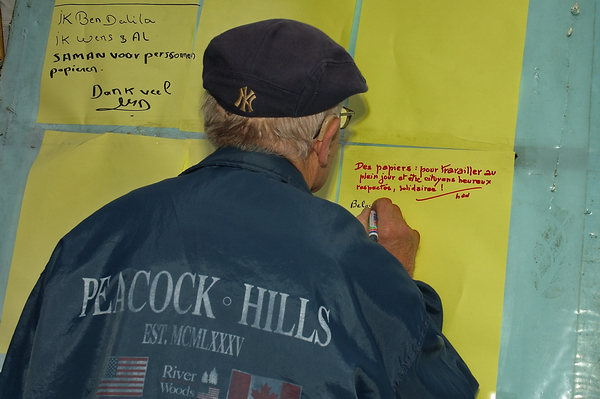 ik Ben Dalila
ik wens 3 AL
SAMAN VOOR personnen
papieren.
Dank veel
Des papiers : pour travailler au
plein jour et être citoyens heureux
respectés, solidaires !
Bela
NY
PEACOCK · HILLS
EST. MCMLXXXV
River
Woods